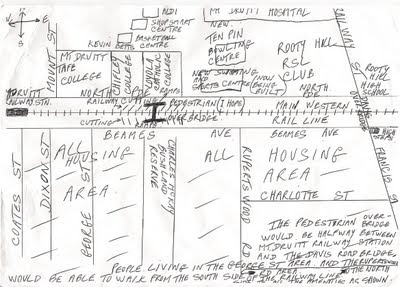 W
E
ALDI
SHOPSMART
CENTRE
BASKETBALL
CENTRE
KEVIN BETTS
MT. DRUITT HOSPITAL
NEW
TEN PIN
BOWLING
CENTRE
ROOTY HILL
RSL
CLUB
RAILWAY
ST
ROOTY
HILL
HIGH
SCHOOL
MOUNT ST
MT. DRUITT
TAFE
COLLEGE
CHIFLEY
COLLEGE
LOYOLA
CATHOLIC
COLLEGE
NEW SWIMMING
AND
SPORTS CENTRE
(NOW
BEING
BUILT)
MT DRUITT
RAILWAY STN.
NORTH
PDE
RAILWAY CUTTING
RAMPS
PEDESTRIAN
OVERBRIDGE
NORTH
PDE
MAIN WESTERN
RAIL LINE
CUTTING
RAMPS
BEAMES AVE
BEAMES AVE
FRANCIS
COATES ST
DIXON ST
ALL
HOUSING
AREA
GEORGE ST
RESERVE
ALL
RUPERTSWOOD RD
HOUSING
AREA
CHARLOTTE ST
THE PEDESTRIAN OVER-
BRIDGE
WOULD BE HALFWAY BETWEEN
MT. DRUITT RAILWAY STATION
AND THE DAVIS ROAD BRIDGE.
PEOPLE LIVING IN THE GEORGE ST AREA AND THE RUPERTSWOOD
RD AREA
WOULD BE ABLE TO WALK FROM THE SOUTH SIDE
RAILWAY LINE
TO THE NORTH
AMENITIES AS SHOWN